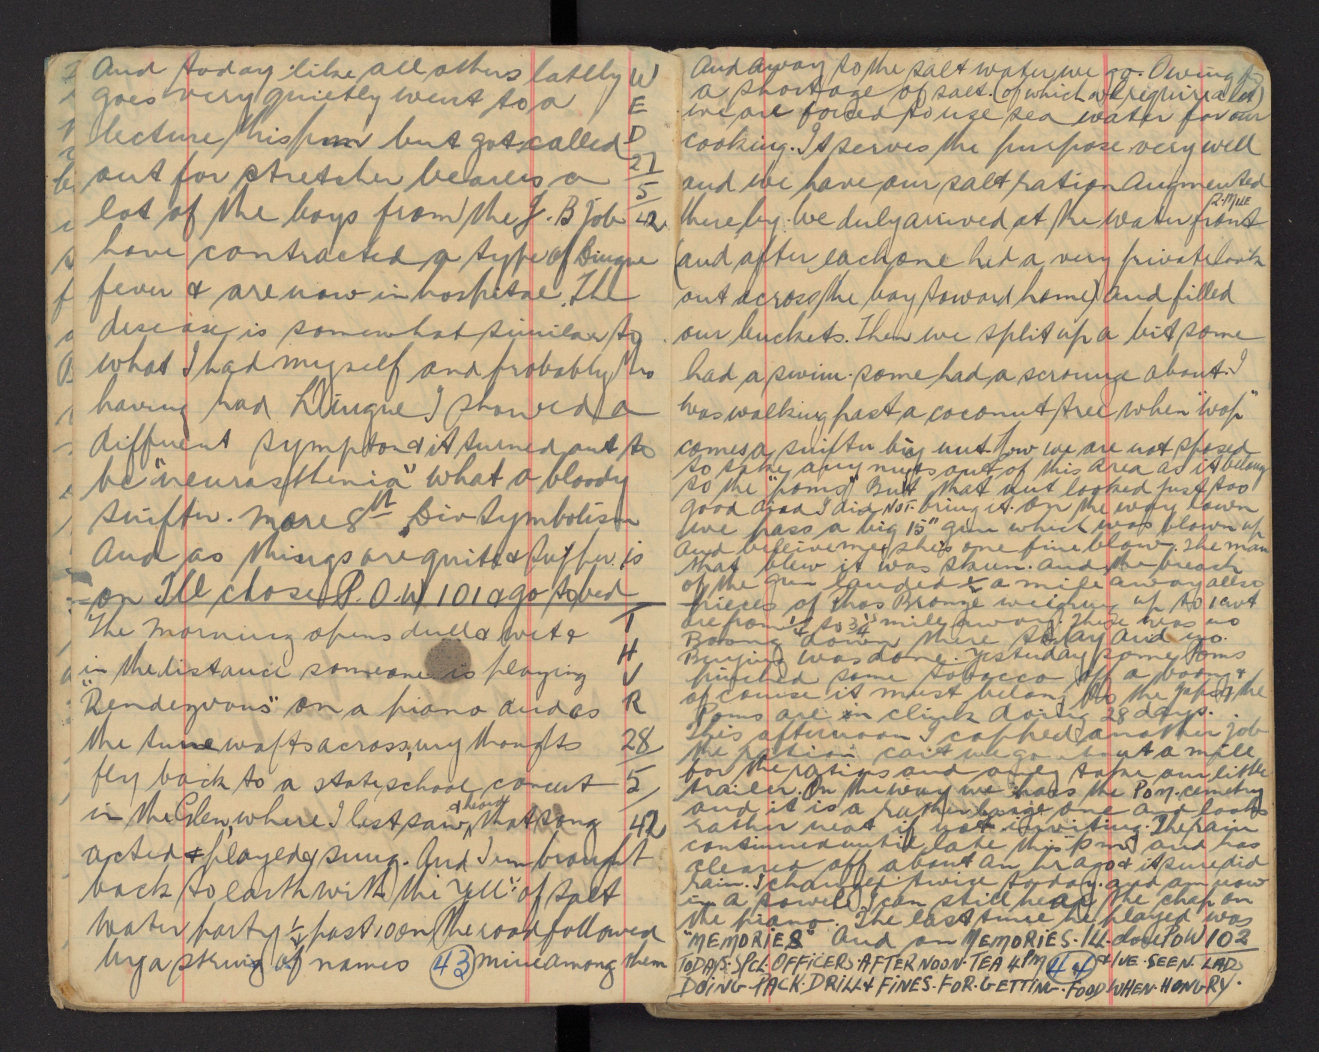 And today like all others lately
goes very quietly went to a
lecture this pm but got called
out for stretcher bearers a
lot of the boys from the J.B job
have contracted a type of Dingue
fever & are now in hospital. The
disease is somewhat similar to
what I had myself and probably thro
having had Dingue I showed a
different symptom & it turned out to
be "neurasthenia" what a bloody
snifter. More 8th Div Symbolism
And as things are quite & supper is
on I'll close P.O.W 101 & go to bed
WED
27
5
42
The morning opens dull & wet &
in the distance someone is playing
"Rendezvous" on a piano and as
the tune wafts across, my thoughts
fly back to a state school concert
in the Glen, where I last saw & heard that song
acted & played & sung. And I em brought
back to earth with the "yell" of salt
water party ½ past 10 on the road followed
by a string of names (43) mine among them
THUR
28
5
42
And away to the salt water we go. Owing to
a shortage of salt. (of which we require a lot)
we are forced to use sea water for our
cooking. It serves the purpose very well
and we have our salt ration augmented
thereby. We duly arrived at the water front 2. MILE
(and after each one had a very private look
out across the bay toward home) and filled
our buckets. Then we split up a bit some
had a swim. some had a scrounge about. I
was walking past a coconut tree when "wop"
comes a snifter big nut. Now we are not sposed
to take any nuts out of this area as it belongs
to the "poms" But that nut looked just too
good and I did NOT bring it. On the way down
we pass a big 15" gun which was blown up
and believe me she's one fine blow. The man
that blew it was skun. and the breach
of the gun landed ½ a mile away also
pieces of phos Bronze weighing up to 1 cwt
are from ¼ to ¾'s mile away. There was no
Boong down there today and no
Buying was done. Yesterday some Poms
pinched some tobacco off a boong &
of course it must belong to the Japs & the
Poms are in clink doing 28 days.
This afternoon I copped another job
the ration cart we go about a mile
for the rations and a guy take our little
trailer. On the way we pass the Pom. cemetry
and it is a rather large one and looks
rather neat if not inviting. The rain
continued until late this pm and has
cleared off about an hr ago & it sure did
rain. I changed twice today. and am now
in a towel. I can still hear the chap on
the piano. The last tune he played was
"MEMORIES" And on MEMORIES. I'll close POW 102
TODAYS. SPCL. OFFICERS. AFTERNOON. TEA 4 PM (44) & I'VE. SEEN. LADS
DOING. PACK. DRILL & FINES. FOR. GETTING. FOOD WHEN. HUNGRY.